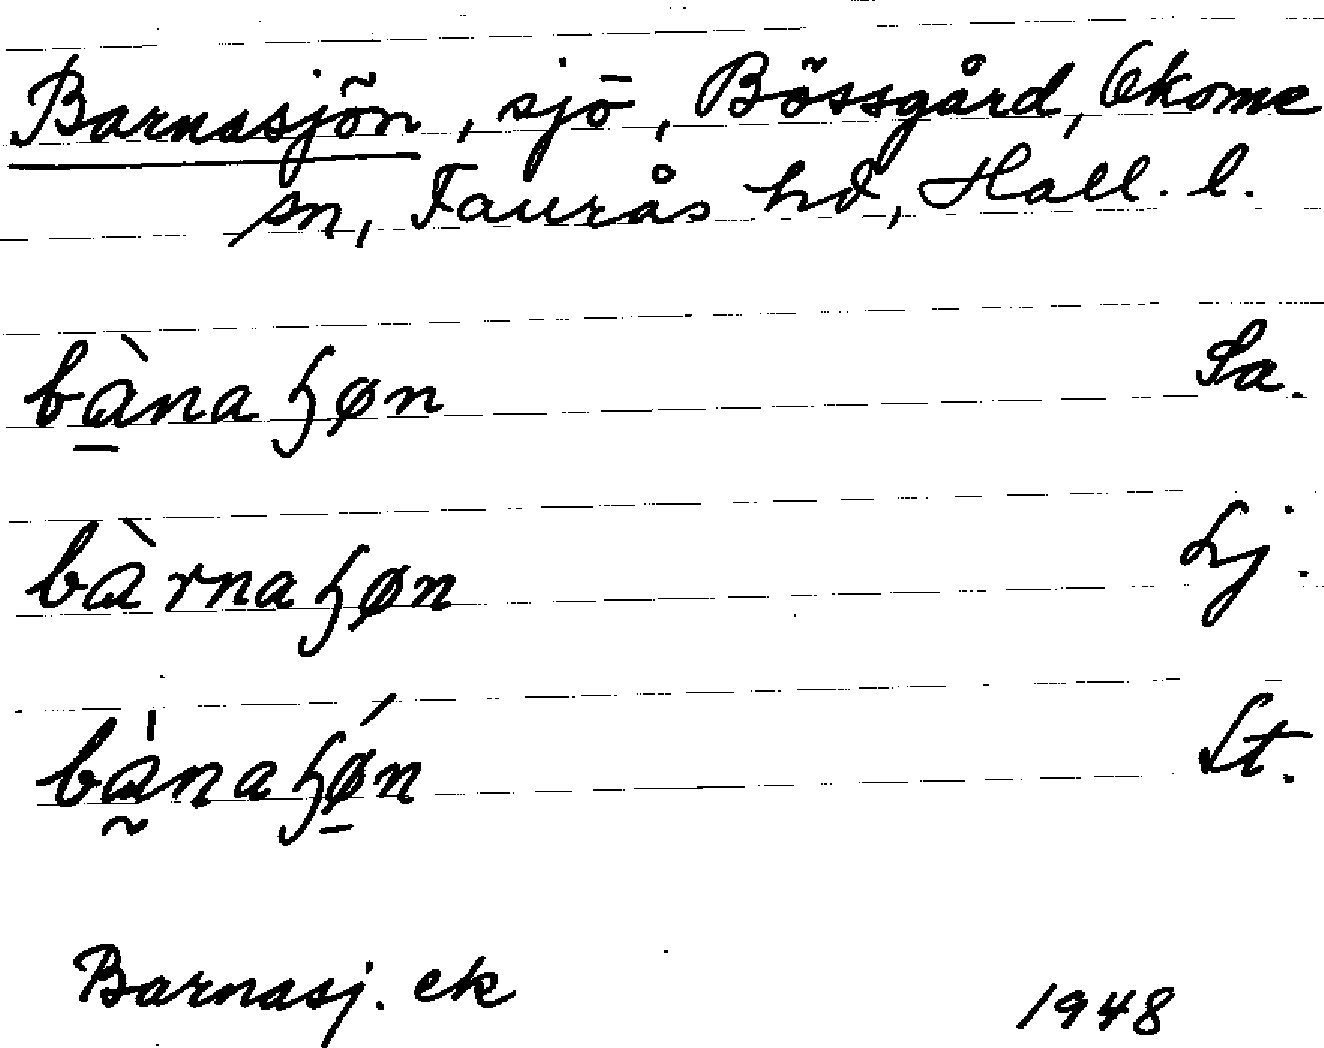 Barnasjön, sjö, Bössgård, Okome
sn, Faurås hd, Hall. l.
bà̱naɧøn Sa.
bàrnaɧøn Lj.
bà̰naɧǿ̱n St.
Barnasj. ek 1948